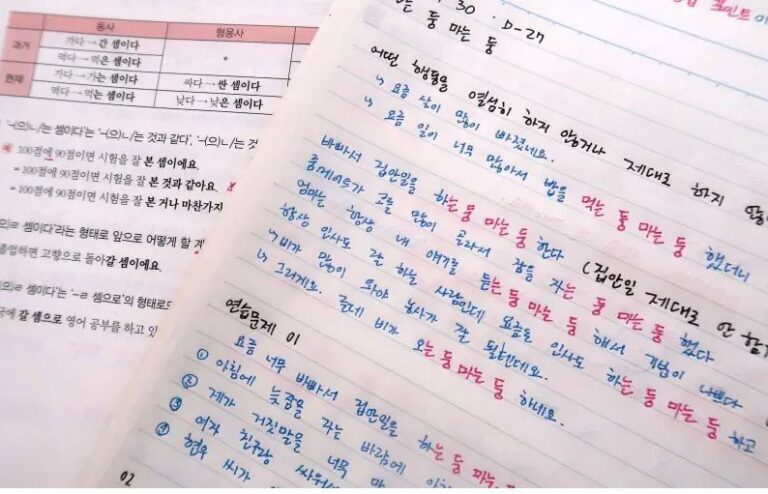 동사
형용사
과거
가다 → 간 셈이다
먹다 → 먹은 셈이다
*
현재
가다 → 가는 셈이다
싸다 → 싼 셈이다
먹다 → 먹는 셈이다
낮다 → 낮은 셈이다
'-(으)ㄴ/는 셈이다'는 '-(으)ㄴ/는 것과 같다', '-(으)ㄴ/는 것
100점에 90점이면 시험을 잘 본 셈이에요.
= 100점에 90점이면 시험을 잘 본 것과 같아요.
= 100점에 90점이면 시험을 잘 본 거나 마찬가지
셈이다'라는 형태로 앞으로 어떻게 할
졸업하면 고향으로 돌아갈 셈이에요.
셈이다'는 '-ㄹ 셈으로'의 형태로
갈 셈으로 영어 공부를 하고 있
포인트
30 · D-27
는 둥 마는 둥
어떤 행동을 열성히 하지 않거나 제대로 하지
↳ 요즘 살이 많이 빠졌네요.
↳ 요즘 일이 너무 많아서 밥을 먹는 둥 마는 둥 했더니
바빠서 집안일을 하는 둥 마는 둥 한다 (집안일 제대로 안 함)
룸메이트가 코를 많이 골아서 잠을 자는 둥 마는 둥 했다
엄마는 항상 내 얘기를 듣는 둥 마는 둥 해서 기분이 나쁘다
항상 인사도 잘 하는 사람인데 요즘은 인사도 하는 둥 마는 둥 하고
↳ 비가 많이 와야 농사가 잘 될텐데요.
↳ 그러게요. 근데 비가 오는 둥 마는 둥 하네요.
연습문제 01
요즘 너무 바빠서 집안일을 하는 둥 마는
① 아침에 늦잠을 자는 바람에
② 제가 거짓말을 너무
③ 여자 친구랑 싸워서
④ 현우 씨가
02